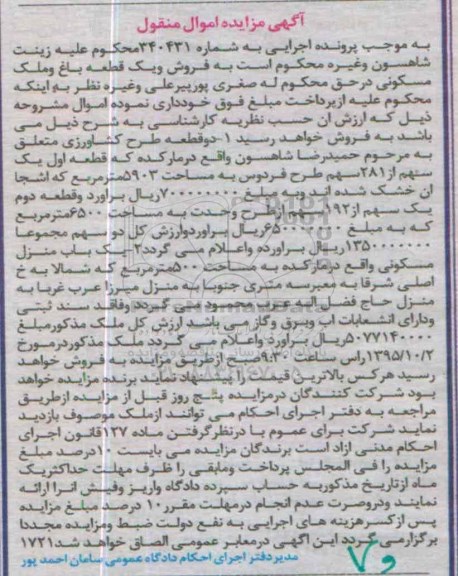 آگهی مزایده اموال منقول
به موجب پرونده اجرایی به شماره ۳۴۰۴۳۱محکوم علیه زینت
شاهسون وغیره محکوم است به فروش ویک قطعه باغ وملک
مسکونی درحق محکوم له صغری پورپیرعلی وغیره نظر به اینکه
محکوم علیه ازپرداخت مبلغ فوق خودداری نموده اموال مشروحه
ذیل که ارزش ان حسب نظریه کارشناسی به شرح ذیل می
باشد به فروش خواهد رسید ۱-دوقطعه طرح کشاورزی متعلق
به مرحوم حمیدرضا شاهسون واقع درمارکده که قطعه اول یک
سهم از۲۸۱سهم طرح فردوس به مساحت ۵۹۰۳مترمربع که اشجا
ان خشک شده اند وبه مبلغ ۷۰۰۰۰۰۰۰۰ریال براورد وقطعه دوم
یک سهم از۱۹۲سهم ازطرح وحدت به مساحت ۶۵۰۰مترمربع
که به مبلغ ریال براوردوارزش کل دو سهم مجموعا
۱۳۵۰۰۰۰۰۰۰ریال براورده واعلام می گردد۲-یک باب منزل
مسکونی واقع درمارکده به مساحت ۵۰۰مترمربع که شمالا به خ
اصلی شرقا به معبرسه متری جنوبا به منزل میرزا عرب غربا به
منزل حاج فضل اله عرب محدود می گردد وفاقد سند ثبتی
ودارای انشعابات اب وبرق وگاز می باشد ارزش کل ملک مذکورمبلغ
۵۰۷۷۱۴۰۰۰۰ریال براورد واعلام می گردد ملک مذکوردرمورخ
۱۳۹۵/۱۰/۲راس ساعت ۹:۳۰صبح ازطریق مزایده به فروش خواهد
رسید هرکس بالاترین قیمت را پیشنهاد نماید برنده مزایده خواهد
بود شرکت کنندگان درمزایده پنج روز قبل از مزایده ازطریق
مراجعه به دفتر اجرای احکام می توانند ازملک موصوف بازدید
نماید شرکت برای عموم با درنظرگرفتن ماده ۱۲۷قانون اجرای
احکام مدنی ازاد است برندگان مزایده می بایست ۱۰درصد مبلغ
مزایده را فی المجلس پرداخت ومابقی را ظرف مهلت حداکثریک
ماه ازتاریخ مذکوربه حساب سپرده دادگاه واریز وفیش انرا ارائه
نمایند ودروصورت عدم انجام درمهلت مقرر۱۰ درصد مبلغ مزایده
پس ازکسرهزینه های اجرایی به نفع دولت ضبط ومزایده مجددا
برگزارمی گردد این اگهی درمعابر عمومی الصاق خواهد شد۱۷۳۱
مدیردفتر اجرای احکام دادگاه عمومی سامان احمد پور